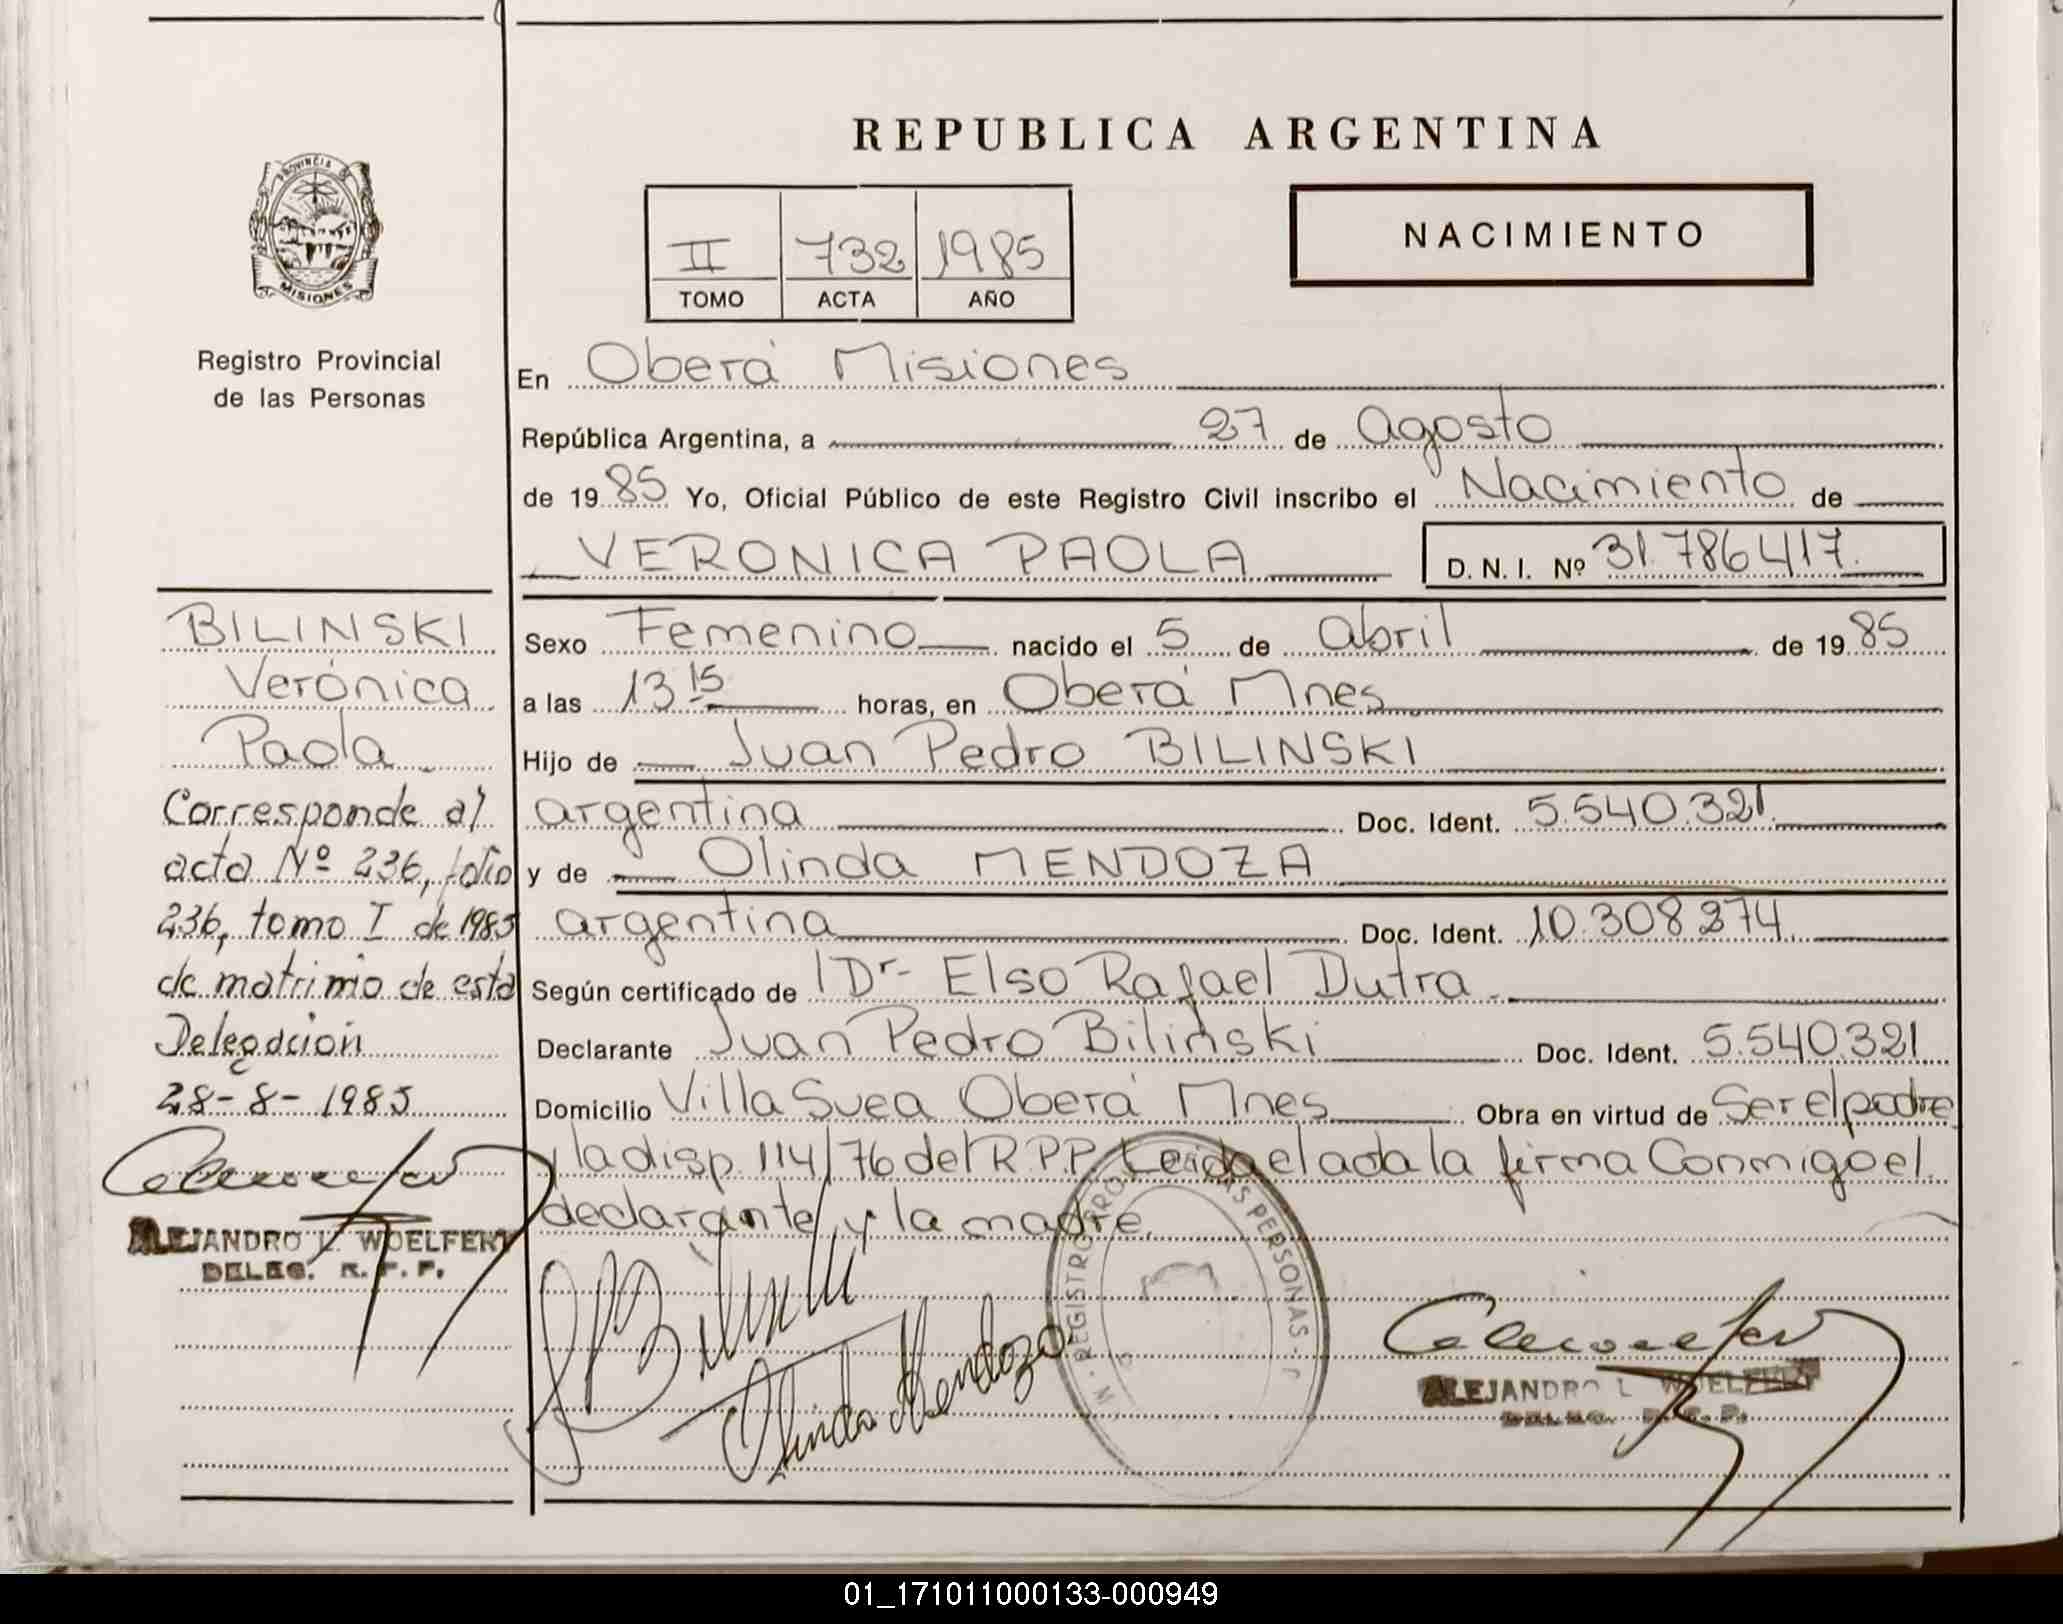 REPUBLICA ARGENTINA
PROVINCIA D
MISIONES
Registro Provincial
de las Personas
II 732 1985
TOMO ACTA AÑO
NACIMIENTO
En Oberá Misiones
República Argentina, a 27 de Agosto
de 1985 Yo, Oficial Público de este Registro Civil inscribo el Nacimiento de
VERONICA PAOLA D. N. I. Nº 31.786417.
Sexo Femenino nacido el 5 de Abril de 1985
a las 13 15 horas, en Oberá Mnes
Hijo de Juan Pedro BILINSKI
argentina Doc. Ident. 5.540.321.
y de Olinda MENDOZA
argentina Doc. Ident. 10.308.274.
Según certificado de Dr. Elso Rafael Dutra
Declarante Juan Pedro Bilinski Doc. Ident. 5.540.321
Domicilio Villa Svea Oberá Mnes Obra en virtud de Ser el padre
y la disp. 114/76 del R.P.P. Leida el acta la firma Conmigo el
declarante y la madre.
BILINSKI
Verónica
Paola
Corresponde al
acta Nº 236, folio
236, tomo I de 1985
de matrimio de esta
Delegación
28-8-1985
ALEJANDRO L. WOELFERT
DELEG. R. P. P.
Bilinski
Olinda Mendoza
REGISTRO PRO LAS PERSONAS
ALEJANDRO L WOELFERT
DELEG. R. P. P.
01_171011000133-000949